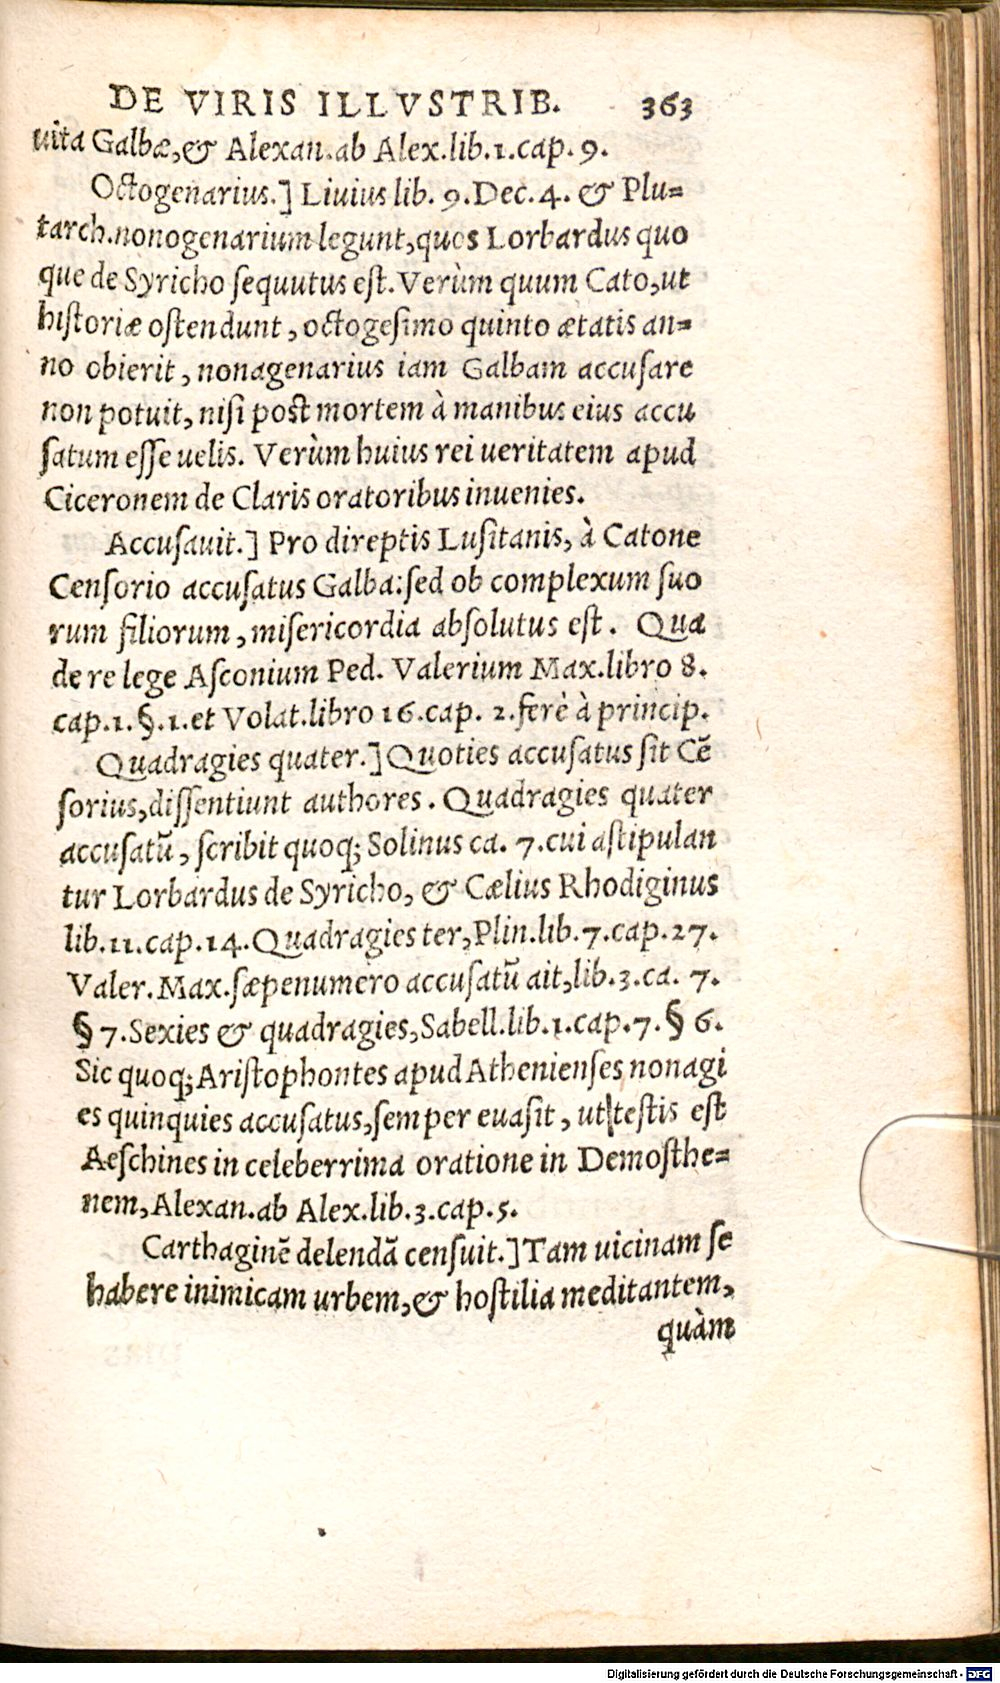 DE VIRIS ILLVSTRIB. 363
uita Galbæ, & Alexan.ab Alex.lib.1.cap.9.
Octogenarius.] Liuius lib. 9.Dec.4. & Plu=
tarch.nonogenarium legunt, quos Lorbardus quo
que de Syricho sequutus est. Verùm quum Cato, ut
historiæ ostendunt, octogesimo quinto ætatis an=
no obierit, nonagenarius iam Galbam accusare
non potuit, nisi post mortem à manibus eius accu
satum esse uelis. Verùm huius rei ueritatem apud
Ciceronem de Claris oratoribus inuenies.
Accusauit.] Pro direptis Lusitanis, à Catone
Censorio accusatus Galba: sed ob complexum suo
rum filiorum, misericordia absolutus est. Qua
de re lege Asconium Ped. Valerium Max.libro 8.
cap.1.§.1.et Volat.libro 16.cap. 2.ferè à princip.
Quadragies quater.] Quoties accusatus sit Cē
sorius, dissentiunt authores. Quadragies quater
accusatū, scribit quoq; Solinus ca. 7.cui astipulan
tur Lorbardus de Syricho, & Cælius Rhodiginus
lib.11.cap.14.Quadragies ter, Plin.lib.7.cap.27.
Valer.Max.sæpenumero accusatū ait, lib.3.ca. 7.
§ 7.Sexies & quadragies, Sabell.lib.1.cap.7.§ 6.
Sic quoq; Aristophontes apud Athenienses nonagi
es quinquies accusatus, semper euasit, ut testis est
Aeschines in celeberrima oratione in Demosthe=
nem, Alexan.ab Alex.lib.3.cap.5.
Carthaginē delendā censuit.] Tam uicinam se
habere inimicam urbem, & hostilia meditantem,
quàm
Digitalisierung gefördert durch die Deutsche Forschungsgemeinschaft - DFG